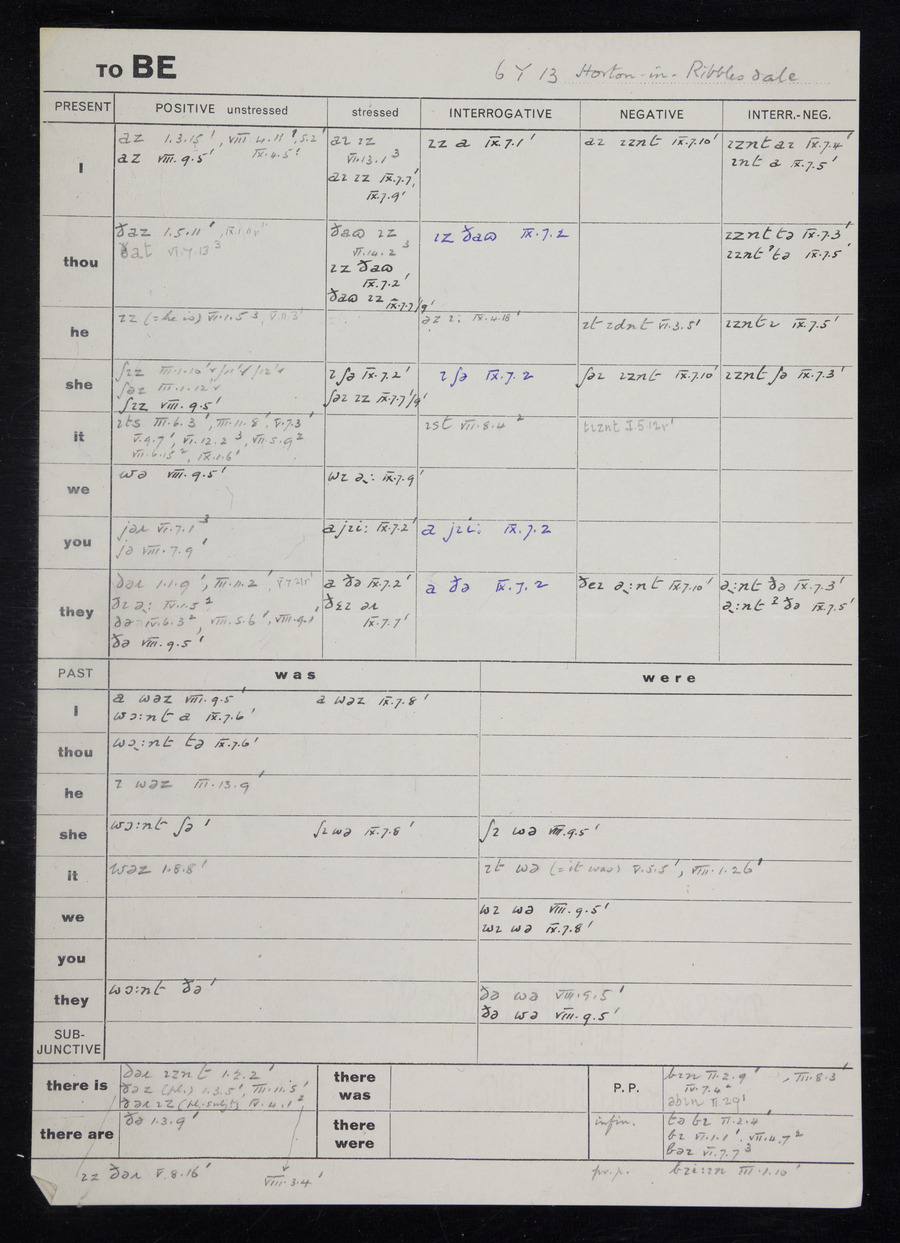 TO BE
6 Y 13 Horton-in-Ribblesdale
PRESENT POSITIVE unstressed stressed INTERROGATIVE NEGATIVE INTERR.-NEG.
I
az 1.3.15'
az VIII.9.5' IX.4.5'
aɪ ɪz VI.13.1³
aɪ ɪz IX.7.7', IX.7.9'
ɪz a IX.7.1'
aɪ ɪznt IX.7.10'
ɪznt aɪ IX.7.4'
ɪnt a IX.7.5'
thou
ðaz 1.5.11'
ðat VI.7.13³
ðaʊ ɪz VI.14.2³
ɪz ðaʊ IX.7.2'
ðaʊ ɪz IX.7.7'/9'
ɪz ðaʊ IX.7.2
ɪznt tə IX.7.3'
ɪznt²tə IX.7.5'
he
ɪz (=he is) VI.1.5³, V.11.3'
əz ɪ: IX.4.18'
ɪt ɪdnt VI.3.5'
ɪznt ɪ IX.7.5'
she
ʃɪz III.1.10'
ʃəz III.1.12'
ʃɪz VIII.9.5'
ɪ ʃə IX.7.2'
ʃəɪ ɪz IX.7.7'/9'
ɪ ʃə IX.7.2
ʃəɪ ɪznt IX.7.10'
ɪznt ʃə IX.7.3'
it
ɪts III.6.3', III.11.8', V.7.3'
V.9.7', VI.12.2³, VII.5.9²
VII.6.15², IX.1.6'
ɪst VII.8.4²
tɪznt I.5.12r'
we
wə VIII.9.5'
wɪ ə: IX.7.9'
you
jəɪ VI.7.1³
jə VIII.7.9'
a jɪi: IX.7.2'
a jɪi: IX.7.2
they
ðəɪ 1.1.9', III.11.2'
ðɪ ə: IV.1.5²
ðə IV.6.3², VIII.5.6'
ðə VIII.9.5'
a ðə IX.7.2'
ðɛɪ əɪ IX.7.7'
a ðə IX.7.2
ðeɪ ə:nt IX.7.10'
ə:nt ðə IX.7.3'
ə:nt²ðə IX.7.5'
PAST was were
I
a wəz VIII.9.5' a wəz IX.7.8'
wɔ:nt a IX.7.6'
thou
wɔ:nt tə IX.7.6'
he
ɪ wəz III.13.9'
she
wɔ:nt ʃə' ʃɪ wə IX.7.8' ʃɪ wə VIII.9.5'
it
wəz 1.8.8' ɪt wə (=it was) V.5.5', VIII.1.26'
we
wɪ wə VIII.9.5'
wɪ wə IX.7.8'
you
they
wɔ:nt ðə' ðə wə VIII.9.5'
ðə wə VIII.9.5'
SUB-
JUNCTIVE
there is
ðəɪ ɪznt 1.2.2'
ðəz (pl.) 1.3.5', III.11.5'
ðəɪ ɪz IV.4.1²
there was
P.P.
bɪn II.2.9', III.8.3'
IV.7.4²
abin II.29'
there are
ðə 1.3.9'
there were
infin.
tə bɪ II.2.4'
bɪ VI.1.1', VII.4.7²
bəɪ VI.7.7³
ɪz ðəɪ V.8.16'
VIII.3.4'
pr.p.
bɪiɪn III.1.10'